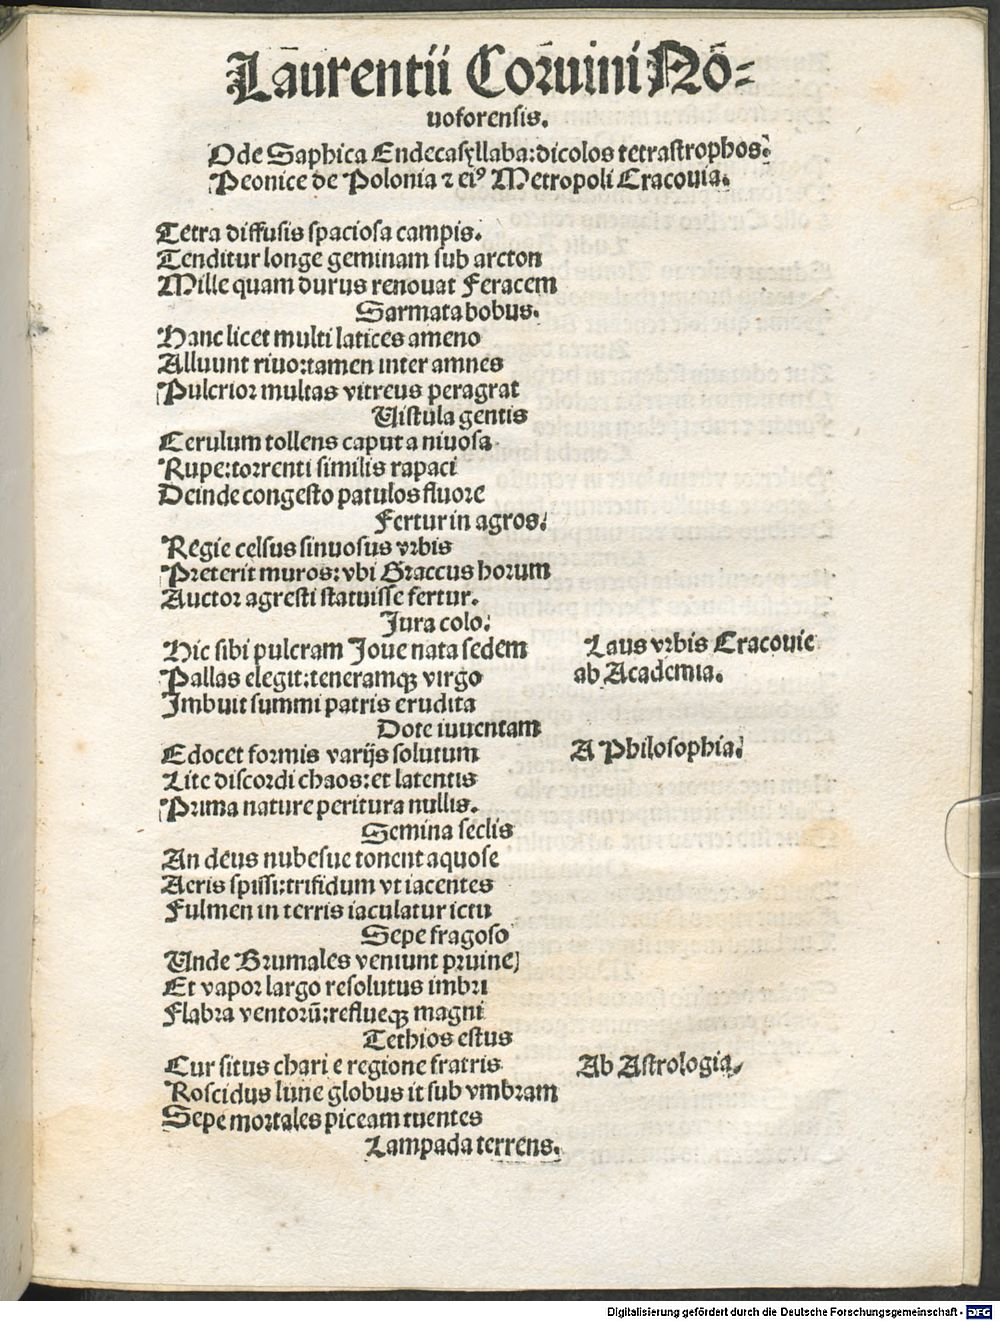 Laurentii Coruini Nō-
uoforensis.
Ode Saphica Endecasyllaba: dicolos tetrastrophos:
Peonice de Polonia ⁊ eiꝰ Metropoli Cracouia.
Tetra diffusis spaciosa campis.
Tenditur longe geminam sub arcton
Mille quam durus renouat Feracem
Sarmata bobus.
Hanc licet multi latices ameno
Alluunt riuo: tamen inter amnes
Pulcrior multas vitreus peragrat
Vistula gentis
Cerulum tollens caput a niuosa
Rupe: torrenti similis rapaci
Deinde congesto patulos fluore
Fertur in agros:
Regie celsus sinuosus vrbis
Preterit muros: vbi Graccus horum
Auctor agresti statuisse fertur.
Jura colo:
Hic sibi pulcram Joue nata sedem
Laus vrbis Cracouie
Pallas elegit: teneramqꝫ virgo
ab Academia.
Imbuit summi patris erudita
Dote iuuentam
Edocet formis varijs solutum
A Philosophia:
Lite discordi chaos: et latentis
Prima nature peritura nullis.
Semina seclis
An deus nubesue tonent aquose
Aeris spissi: trifidum vt iacentes
Fulmen in terris iaculatur ictu
Sepe fragoso
Unde Brumales veniunt pruine
Et vapor largo resolutus imbri
Flabra ventorū: reflueqꝫ magni
Tethios estus
Cur situs chari e regione fratris
Ab Astrologia.
Roscidus lune globus it sub vmbram
Sepe mortales piceam tuentes
Lampada terrens.
Digitalisierung gefördert durch die Deutsche Forschungsgemeinschaft - DFG